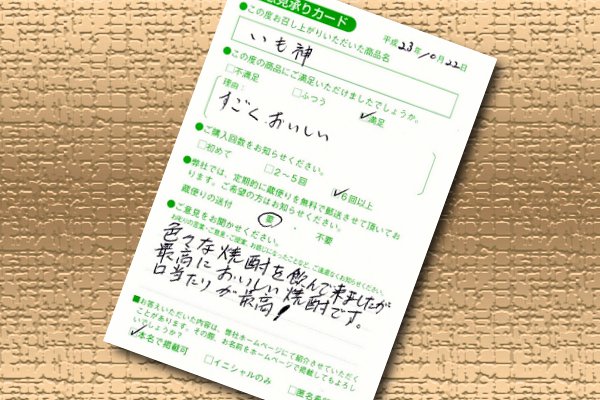 見承りカード
平成23年10月22日
●この度お召し上がりいただいた商品名
いも神
●この度の商品にご満足いただけましたでしょうか。
□不満足 □ふつう ☑満足
理由：
すごくおいしい
●ご購入回数をお知らせください。
□初めて □2〜5回 ☑6回以上
●弊社では、定期的に蔵便りを無料で郵送させて頂いてお
ります。ご希望の方はお知らせください。
蔵便りの送付 要 ・ 不要
●ご意見をお聞かせください。
色々な焼酎を飲んで来ましたが
最高においしい焼酎です。
口当たりが最高!
■お答えいただいた内容は、弊社ホームページにて紹介させていただく
ことがあります。その際、お名前をホームページで掲載してもよろし
いでしょうか?
☑本名で掲載可 □イニシャルのみ □匿名希